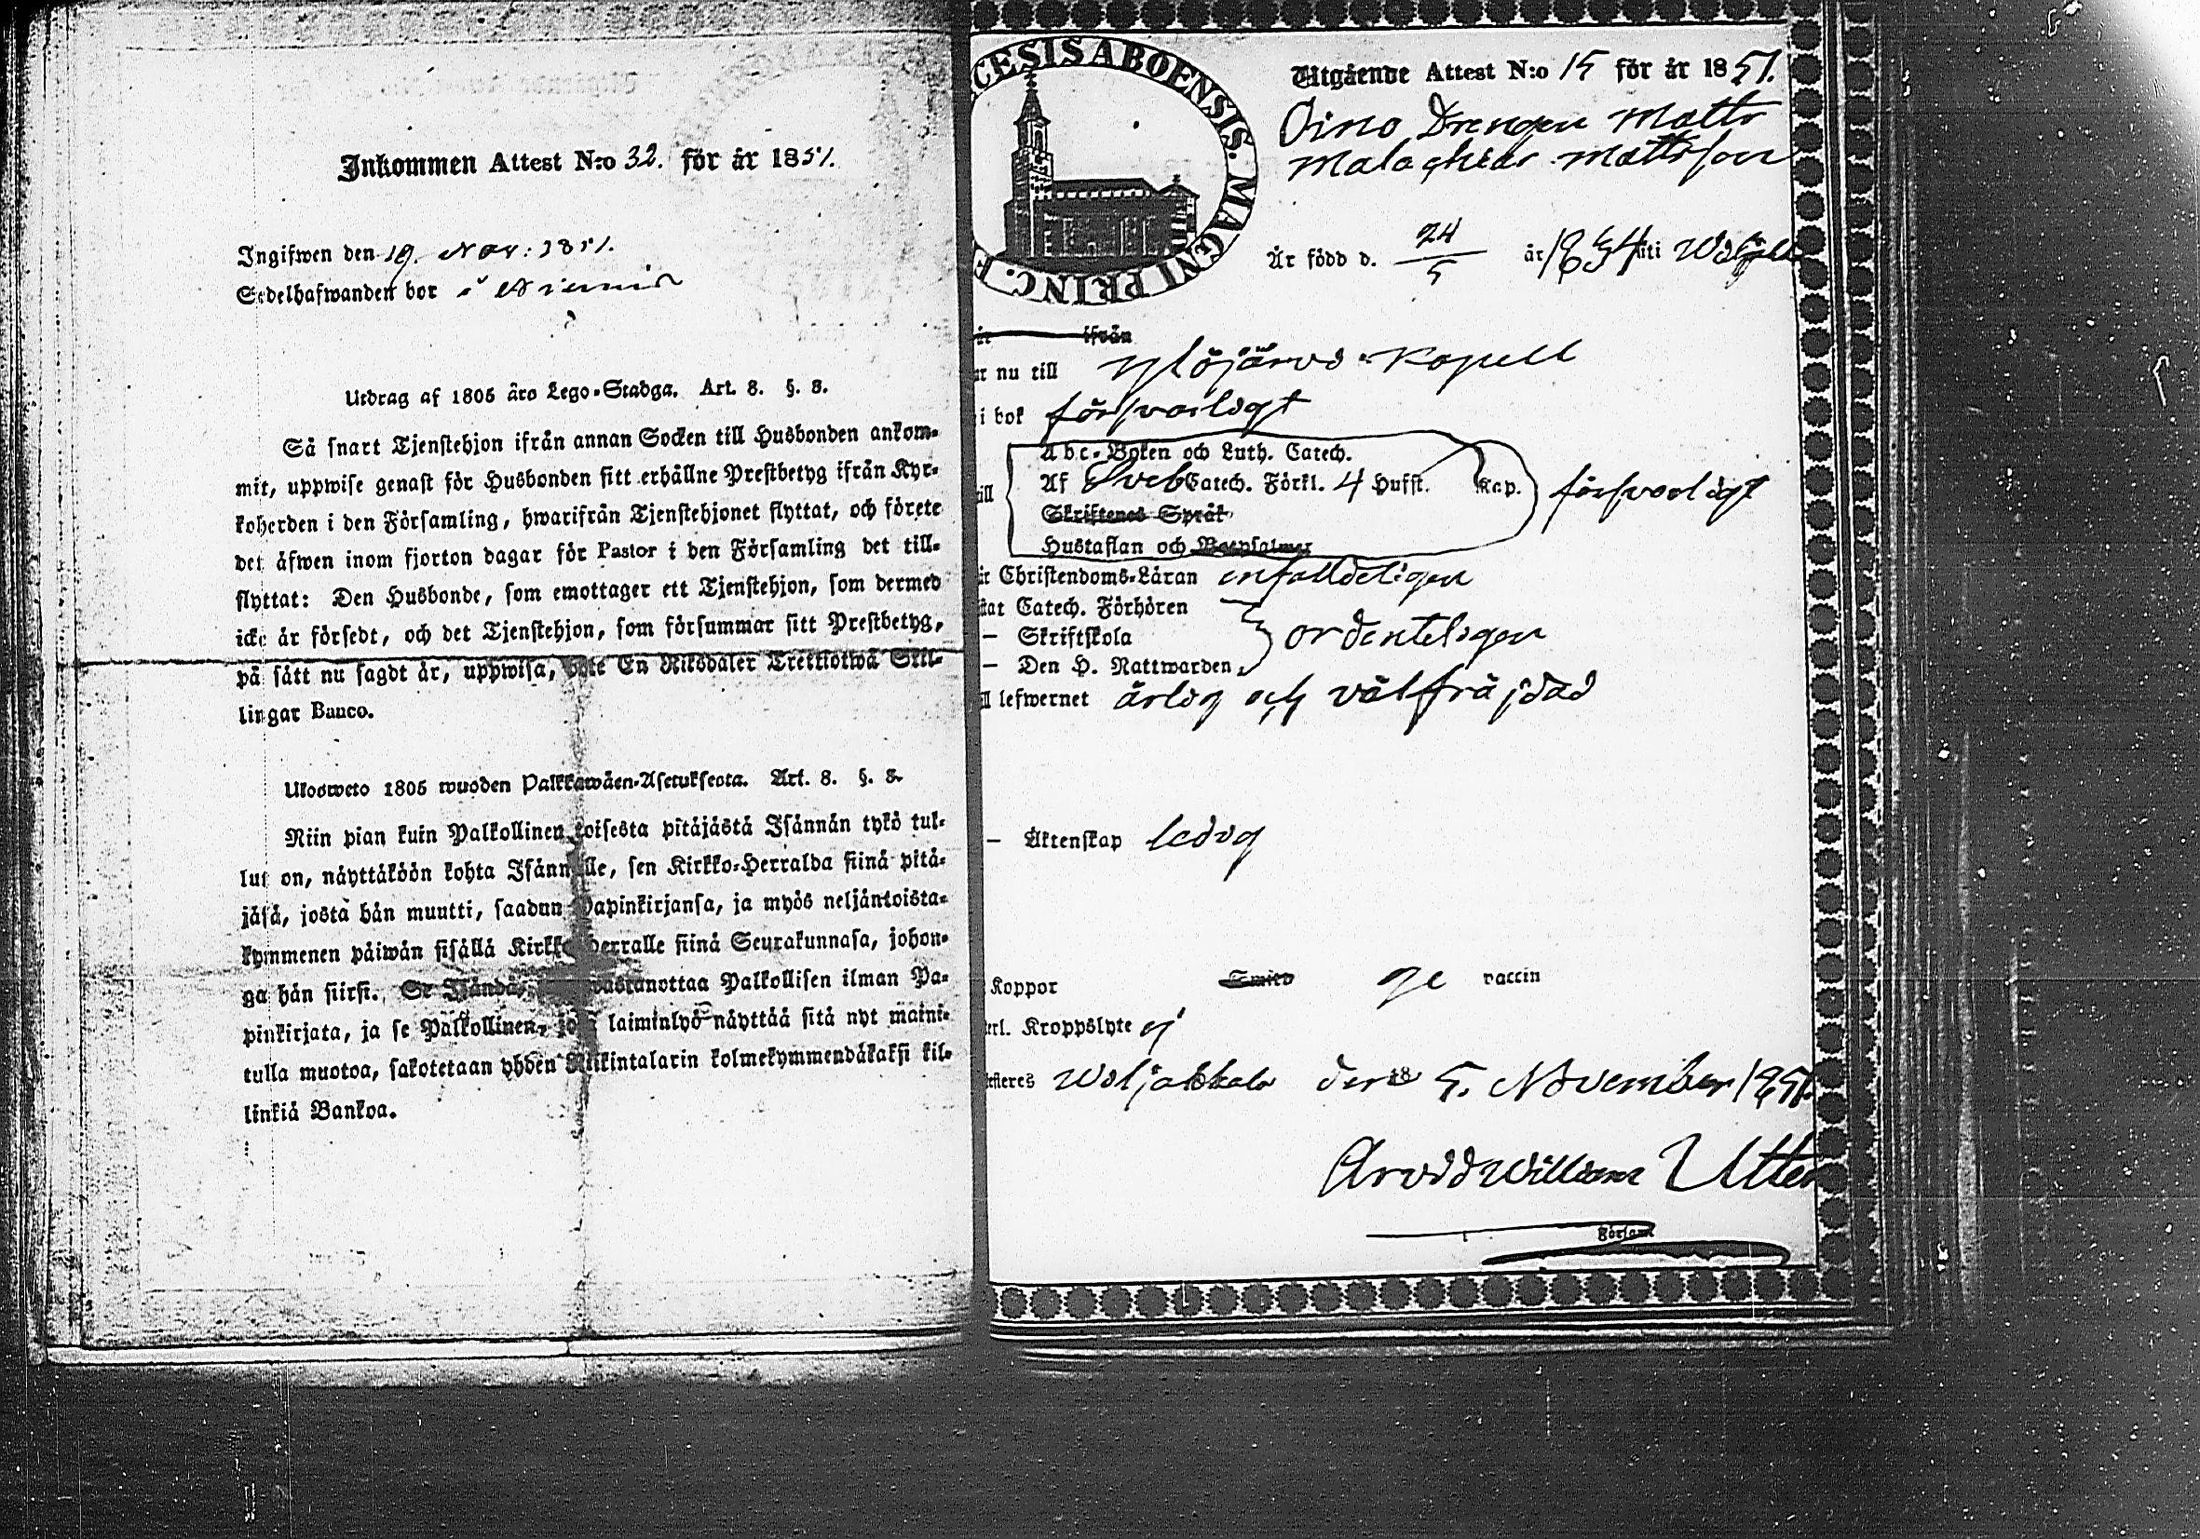 Inkommen Attest N:o 32. för år 1851.
Ingifwen den 19. Nov: 1851.
Sedelhafwanden bor i Niemis
Utdrag af 1805 års Lego-Stadga. Art. 8. §. 8.
Så snart Tjenstehjon ifrån annan Socken till Husbonden ankom-
mit, uppwise genast för Husbonden sitt erhållne Prestbetyg ifrån Kyr-
koherden i den Församling, hwarifrån Tjenstehjonet flyttat, och förete
det äfwen inom fjorton dagar för Pastor i den Församling det till-
flyttat: Den Husbonde, som emottager ett Tjenstehjon, som dermed
icke är försedt, och det Tjenstehjon, som försummar sitt Prestbetyg,
på sätt nu sagdt är, uppwisa, bōte En Riksdaler Trettiotwå Skil-
lingar Banco.
Ulosweto 1805 wuoden Palkkawäen-Asetuksesta. Art. 8. §. 8.
Niin pian kuin Palkollinen toisesta pitäjästä Isännän tykö tul-
lut on, näyttäköön kohta Isännälle, sen Kirkko-Herralda siinä pitä-
jäsä, jostā hän muutti, saadun Papinkirjansa, ja myös neljäntoista-
kymmenen päiwän sisällä Kirkko-Herralle siinä Seurakunnasa, johon-
ga hän siirsi. Se Isändä, vastanottaa Palkollisen ilman Pa-
pinkirjata, ja se Palkollinen, joka laiminlyö näyttää sitä nyt maini-
tulla muotoa, sakotetaan yhden Riikintalarin kolmekymmendäkaksi kil-
linkiä Bankoa.
CESIS ABOENSIS. MAGNI PRINC. F
Utgående Attest N:o 15 för år 1851.
Oino Drengen Matts
Malachias Mattsson
Är född d. 24/5 år 1834 uti Wiljakk
ifrån
nu till Ylöjärvi Kapell
i bok försvarligt
Abc-Boken och Luth. Catech.
Af Sveb Catech. Förkl. 4 Hufst. Kap. försvarligt
Skriftenes Språk
Hustaflan och Botpsalmer
Christendoms-Läran enfalldeligen
Catech. Förhören
— Skriftskola ordenteligen
— Den H. Nattwarden
lefwernet ärlig och välfräjdad
— Äktenskap ledig
Koppor Smitt ge vaccin
Kroppslyte ej
Wiljakkala den 18 5. November 1851.
Arvid William Utter
Försam